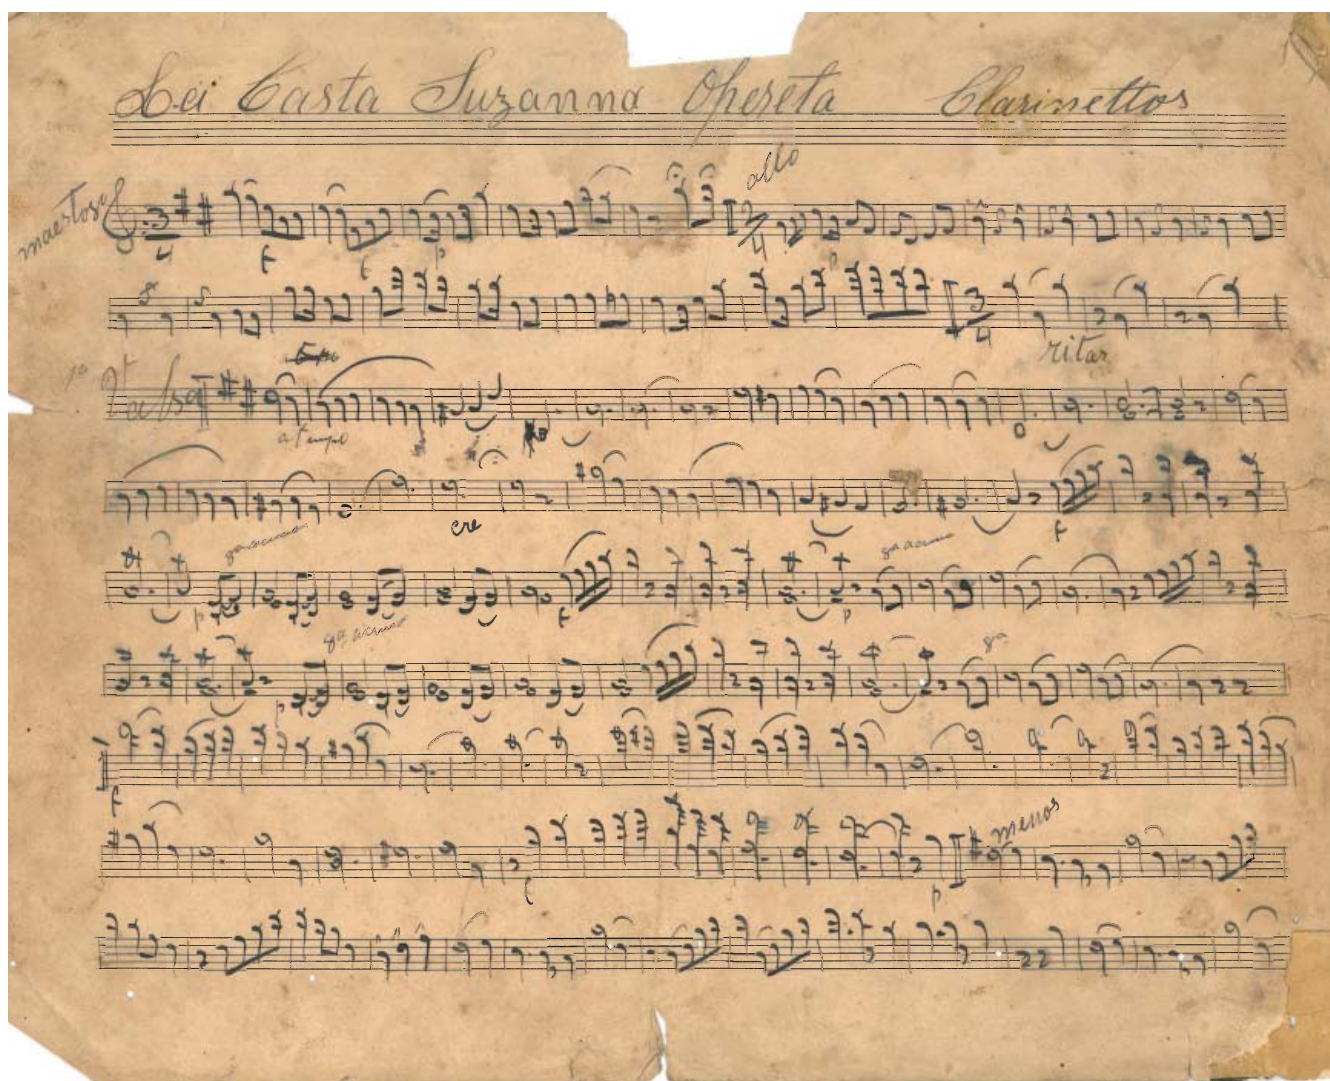 La Casta Suzanna Opereta Clarinettos
maestoso 3 4 f f p allo 2 4 p
3 4 ritar
1ª Valsa a tempo
cre f
8ª acima p f 8ª acima p
8ª acima p 8ª
f
f p menos